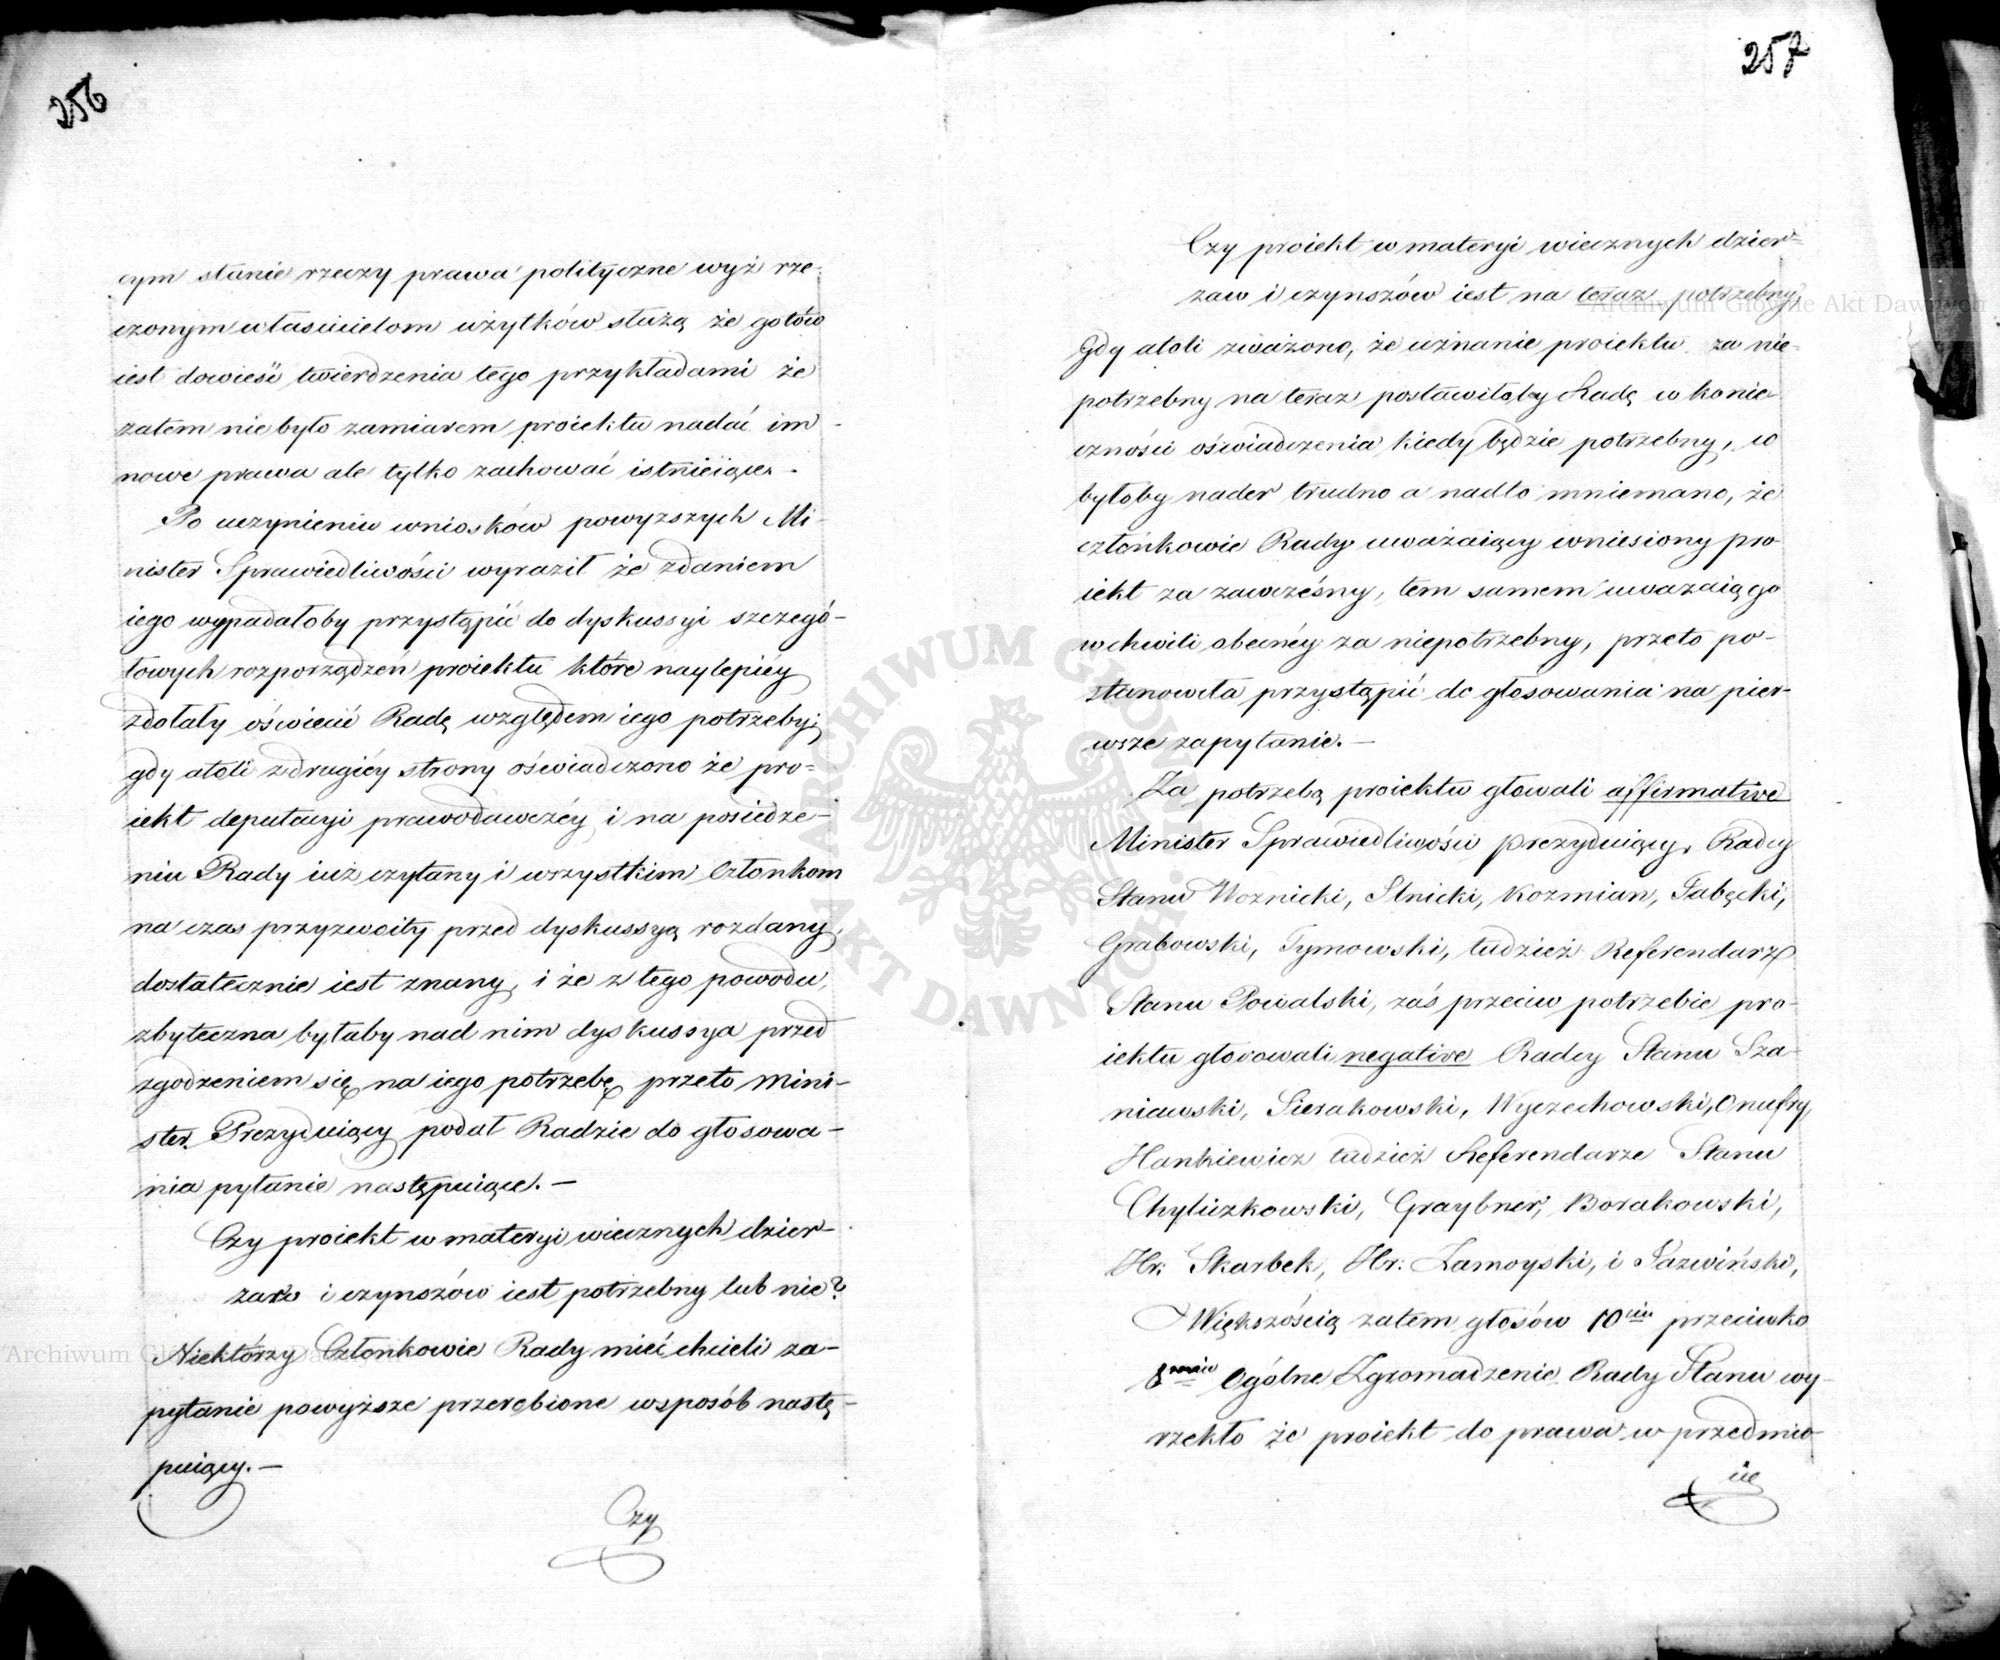 256
cym stanie rzeczy prawa polityczne wyż rze-
czonym właścicielom użytków służą że gotów
iest dowieść twierdzenia tego przykładami że
zatem nie było zamiarem proiektu nadać im
nowe prawa ale tylko zachować istnieiące.
Po uczynieniu wniosków powyższych Mi-
nister Sprawiedliwości wyraził że zdaniem
iego wypadałoby przystąpić do dyskussyi szczegó-
łowych rozporządzeń proiektu które naylepiéy
zdołały oświecić Radę względem iego potrzeby;
gdy atoli z drugiéy strony oświadczono że pro-
iekt deputacyi prawodawczéy i na posiedze-
niu Rady iuż czytany i wszystkim Członkom
na czas przyzwoity przed dyskussyą rozdany,
dostatecznie iest znany, i że z tego powodu,
zbyteczna byłaby nad nim dyskussya przed
zgodzeniem się na iego potrzebę przeto Mini-
ster Prezyduiący podał Radzie do głosowa-
nia pytanie następuiące. —
Czy proiekt w materyi wiecznych dzier-
zaw i czynszów iest potrzebny lub nie?
Niektórzy Członkowie Rady mieć chcieli za-
pytanie powyższe przerobione w sposób nastę-
puiący. —
Czy
257
Czy proiekt w materyi wiecznych dzier-
zaw i czynszów iest na teraz potrzebny,
Gdy atoli zważono, że uznanie proiektu za nie-
potrzebny na teraz postawiłoby Radę w konie-
czności oświadczenia kiedy będzie potrzebny, co
byłoby nader trudno a nadto mniemano, że
członkowie Rady uważaiący wniesiony pro-
iekt za zawczésny, tem samem uwazaią go
w chwili obecnéy za niepotrzebny, przeto po-
stanowiła przystąpić do głosowania na pier-
wsze zapytanie. —
Za potrzebą proiektu głowali affirmative
Minister Sprawiedliwości Prezyduiący, Radcy
Stanu Woznicki, Linicki, Kozmian, Tabęcki,
Grabowski, Tymowski, tudzież Referendarz
Stanu Powalski, zaś przeciw potrzebie pro-
iektu głosowali negative Radcy Stanu Sza-
niawski, Sierakowski, Wyczechowski, Onufry,
Hankiewicz tudzież Referendarze Stanu
Chyliczkowski, Graybner, Borakowski,
Hr: Skarbek, Hr: Zamoyski, i Łazwiński,
Większością zatem głosów 10ciu przeciwko
8miu Ogólne Zgromadzenie Rady Stanu wy-
rzekło że proiekt do prawa w przedmio-
cie
ARCHIWUM GŁÓWNE AKT DAWNYCH
Archiwum Główne Akt Dawnych
Archiwum Główne Akt Dawnych